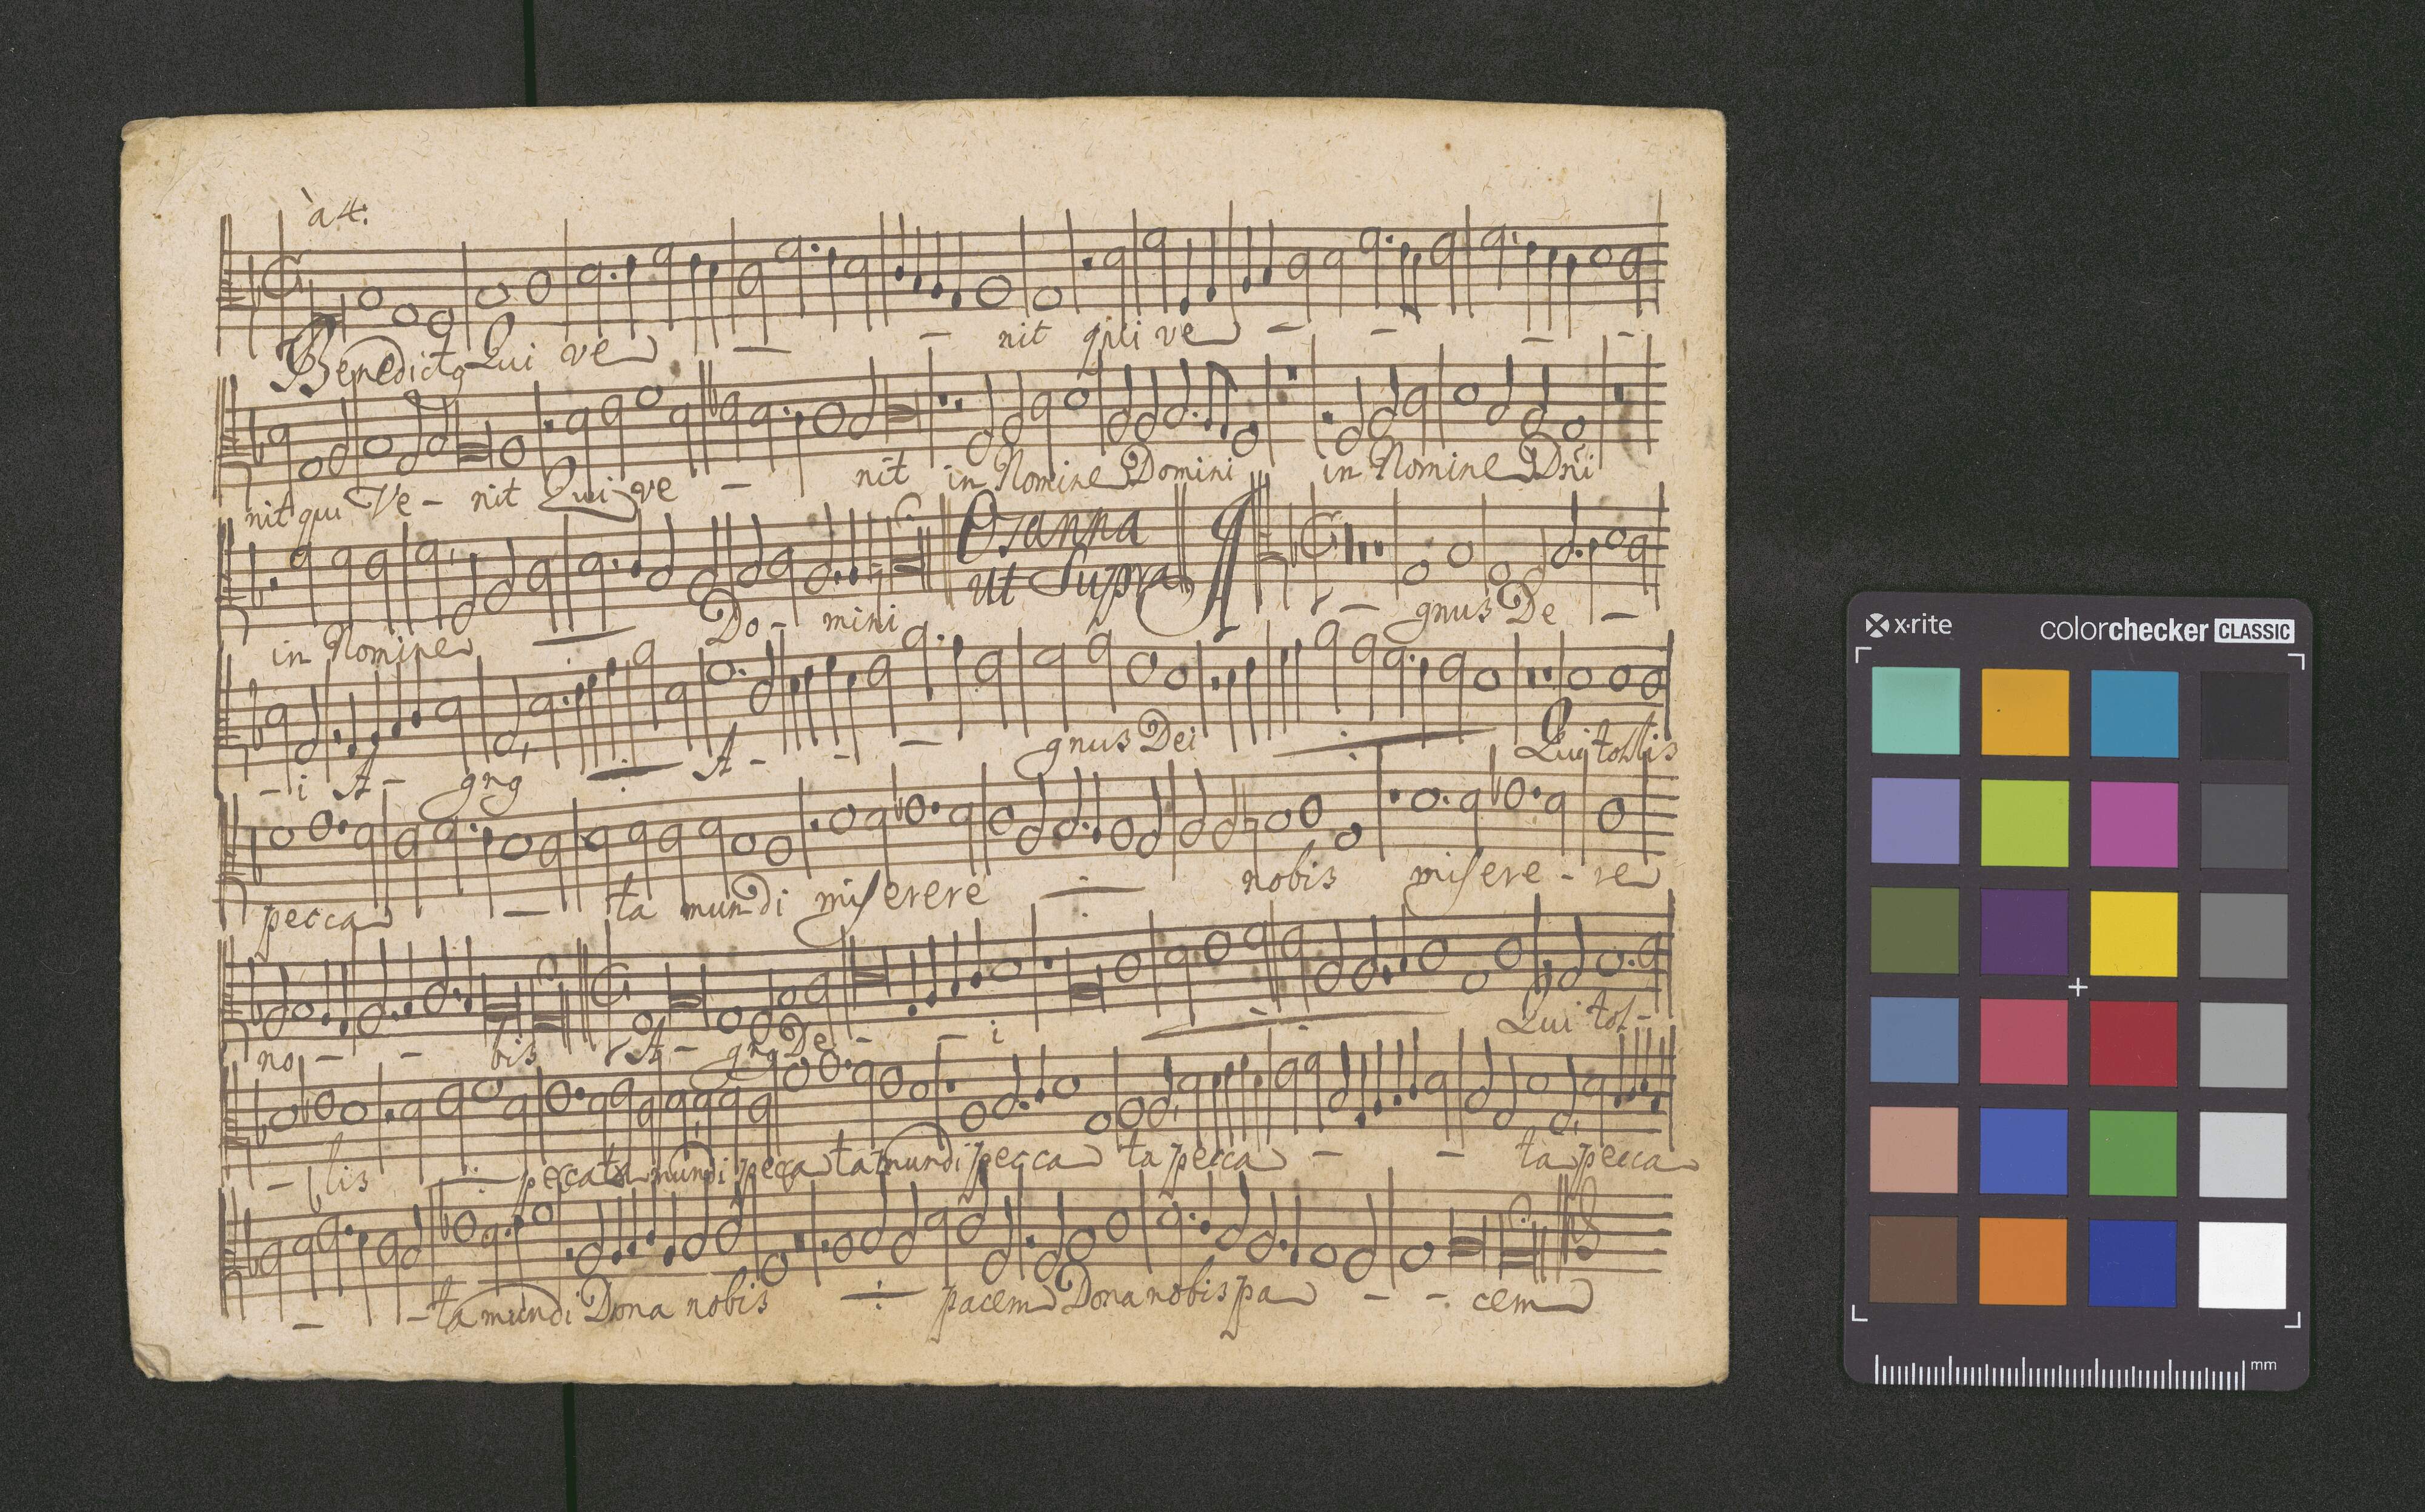 à 4.
Benedictq Qui ve - - nit qui ve - - - -
nit qui Ve - nit Qui ve - nit in Nomine Domini in Nomine Dñi
in Nomine Do - mini Osanna ut Supra A - gnus De -
- i A - gnq ÷ A - - - gnus Dei ÷ Qui tollis
pecca - ta mundi miserere ÷ nobis misere - re
no - - bis A - gnq De - - i ÷ Qui tol -
- lis ÷ peccata mundi pecca ta mundi pecca ta pecca - - ta pecca
- - ta mundi Dona nobis ÷ pacem Dona nobis pa - - cem
x·rite colorchecker CLASSIC
mm